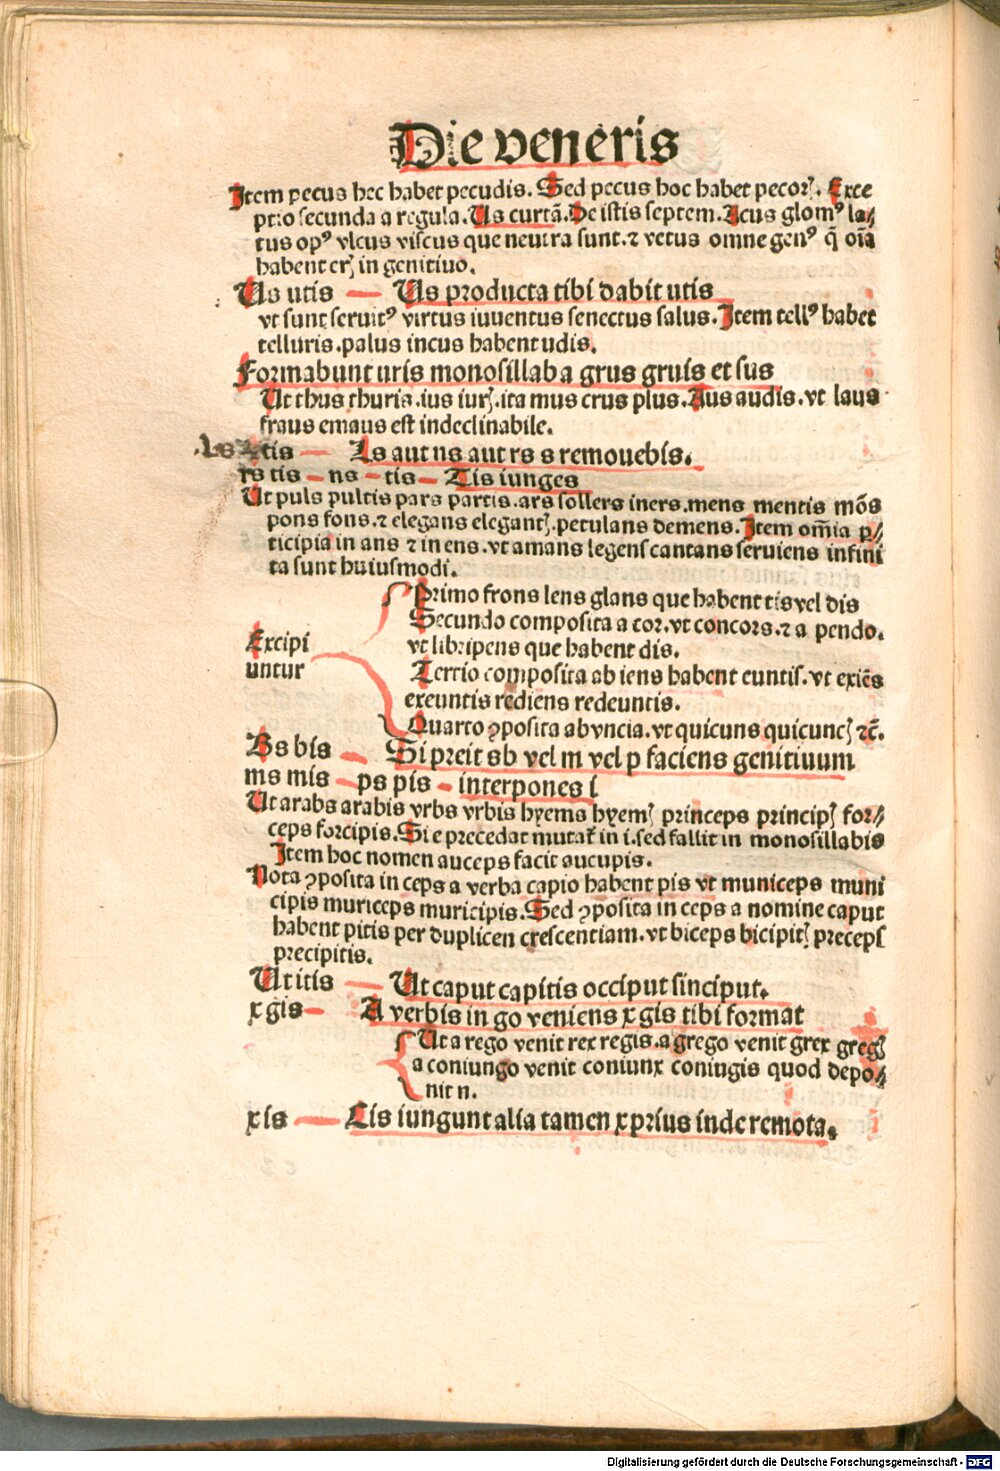 Die veneris
Item pecus hec habet pecudis. Sed pecus hoc habet pecorꝫ. Exce
ptio secunda a regula. Us curtā. De istis septem. Acus glomꝰ la⸗
tus opꝰ vlcus viscus que neutra sunt. ⁊ vetus omne genꝰ q̄ oīa
habent erꝫ in genitiuo.
Us utis — Us producta tibi dabit utis
vt sunt seruitꝰ virtus iuuentus senectus salus. Item tellꝰ habet
telluris. palus incus habent udis.
Formabunt uris monosillaba grus gruis et sus
Ut thus thuris. ius iurꝫ. ita mus crus plus. Aus audis. vt laus
fraus emaus est indeclinabile.
Ls ⁊ tis — Ls aut ns aut rs s remouebis.
rs tis — ns — tis — Tis iunges
Ut puls pultis pars partis. ars sollers iners. mens mentis mōs
pons fons. ⁊ elegans elegantꝫ. petulans demens. Item om̄ia p⸗
ticipia in ans ⁊ in ens. vt amans legens cantans seruiens infini
ta sunt huiusmodi.
Primo frons lens glans que habent tis vel dis
Secundo composita a cor. vt concors. ⁊ a pendo.
Excipi
vt libripens que habent dis.
untur
Tertio composita ab iens habent euntis. vt exiēs
exeuntis rediens redeuntis.
Quarto ꝯposita ab vncia. vt quicuns quicuncꝫ ⁊c̄.
Bs bis — Si preit s b vel m vel p faciens genitiuum
ms mis — ps pis — interpones i
Ut arabs arabis vrbs vrbis hyems hyemꝫ princeps principꝫ for⸗
ceps forcipis. Si e precedat mutat̄ in i. sed fallit in monosillabis
Item hoc nomen auceps facit aucupis.
Nota ꝯposita in ceps a verba capio habent pis vt municeps muni
cipis muriceps muricipis. Sed ꝯposita in ceps a nomine caput
habent pitis per duplicen crescentiam. vt biceps bicipitꝫ preceps
precipitis.
Ut itis — Ut caput capitis occiput sinciput.
x gis — A verbis in go veniens x gis tibi format
Ut a rego venit rex regis. a grego venit grex gregꝫ
a coniungo venit coniunx coniugis quod depo⸗
nit n.
xis — Cis iungunt alia tamen x prius inde remota.
Digitalisierung gefördert durch die Deutsche Forschungsgemeinschaft - DFG